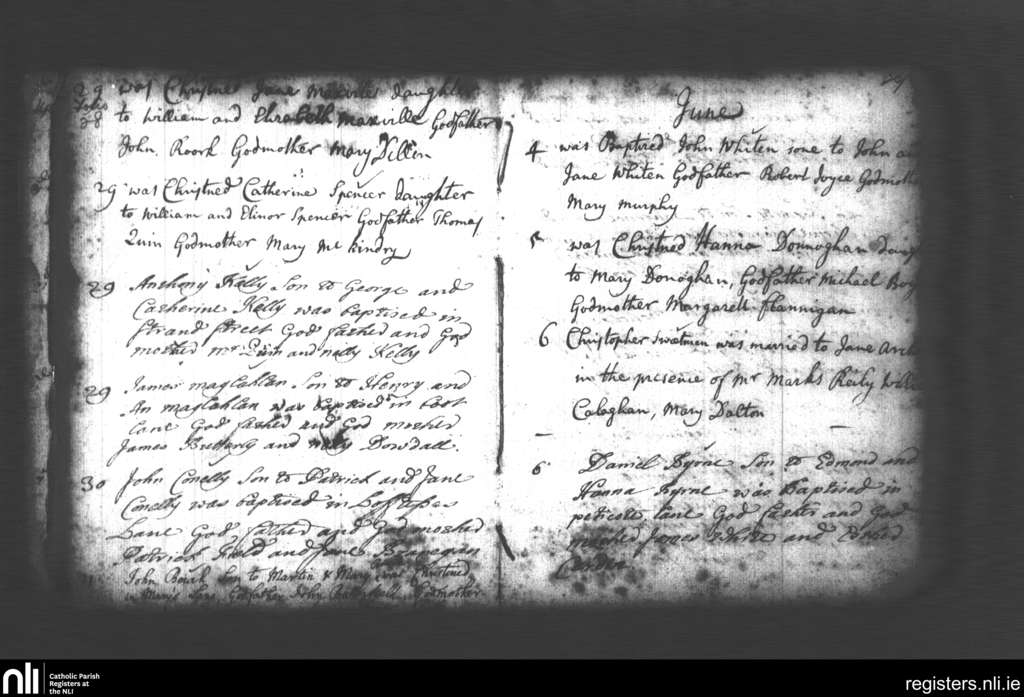 29 was Christned Jane Maxville Daughter
to William and Elizabeth Maxville Godfather
28
John Roork Godmother Mary Dillon
29 was Christned Catherine Spencer Daughter
to William and Elinor Spencer Godfather Thomas
Quin Godmother Mary Mc kindry
29 Anthony Kelly Son to George and
Catherine Kelly was baptised in
Strand street God father and God
mother mr and Kelly
29 James maglahlan Son to Henry and
An maglahlan was baptised in boot
lane God father and God mother
James and Dowdall.
30 John Conelly Son to Patrick and Jane
Conelly was baptised in
Lane God father and God mother
Patrick and
John Son to Martin & Mary Christned
Lane, Godfather John Godmother
June
4 was Baptized John Whiten sone to John
Jane Whiten Godfather Robert Joyce Godmothe
Mary murphy
5 was Christned Hanna Donnoghan Daug
to Mary Donoghan, Godfather Michael
Godmother Margarett Flannigan
6 Christopher Swetmen was married to Jane
in the presence of mr Marks Reily
Calaghan, Mary Dalton
6 Daniel Byrne Son to Edmond and
Hanna Byrne was Baptised in
peticote lane God father and God
mother James White and
nli
Catholic Parish
Registers at
the NLI
registers.nli.ie